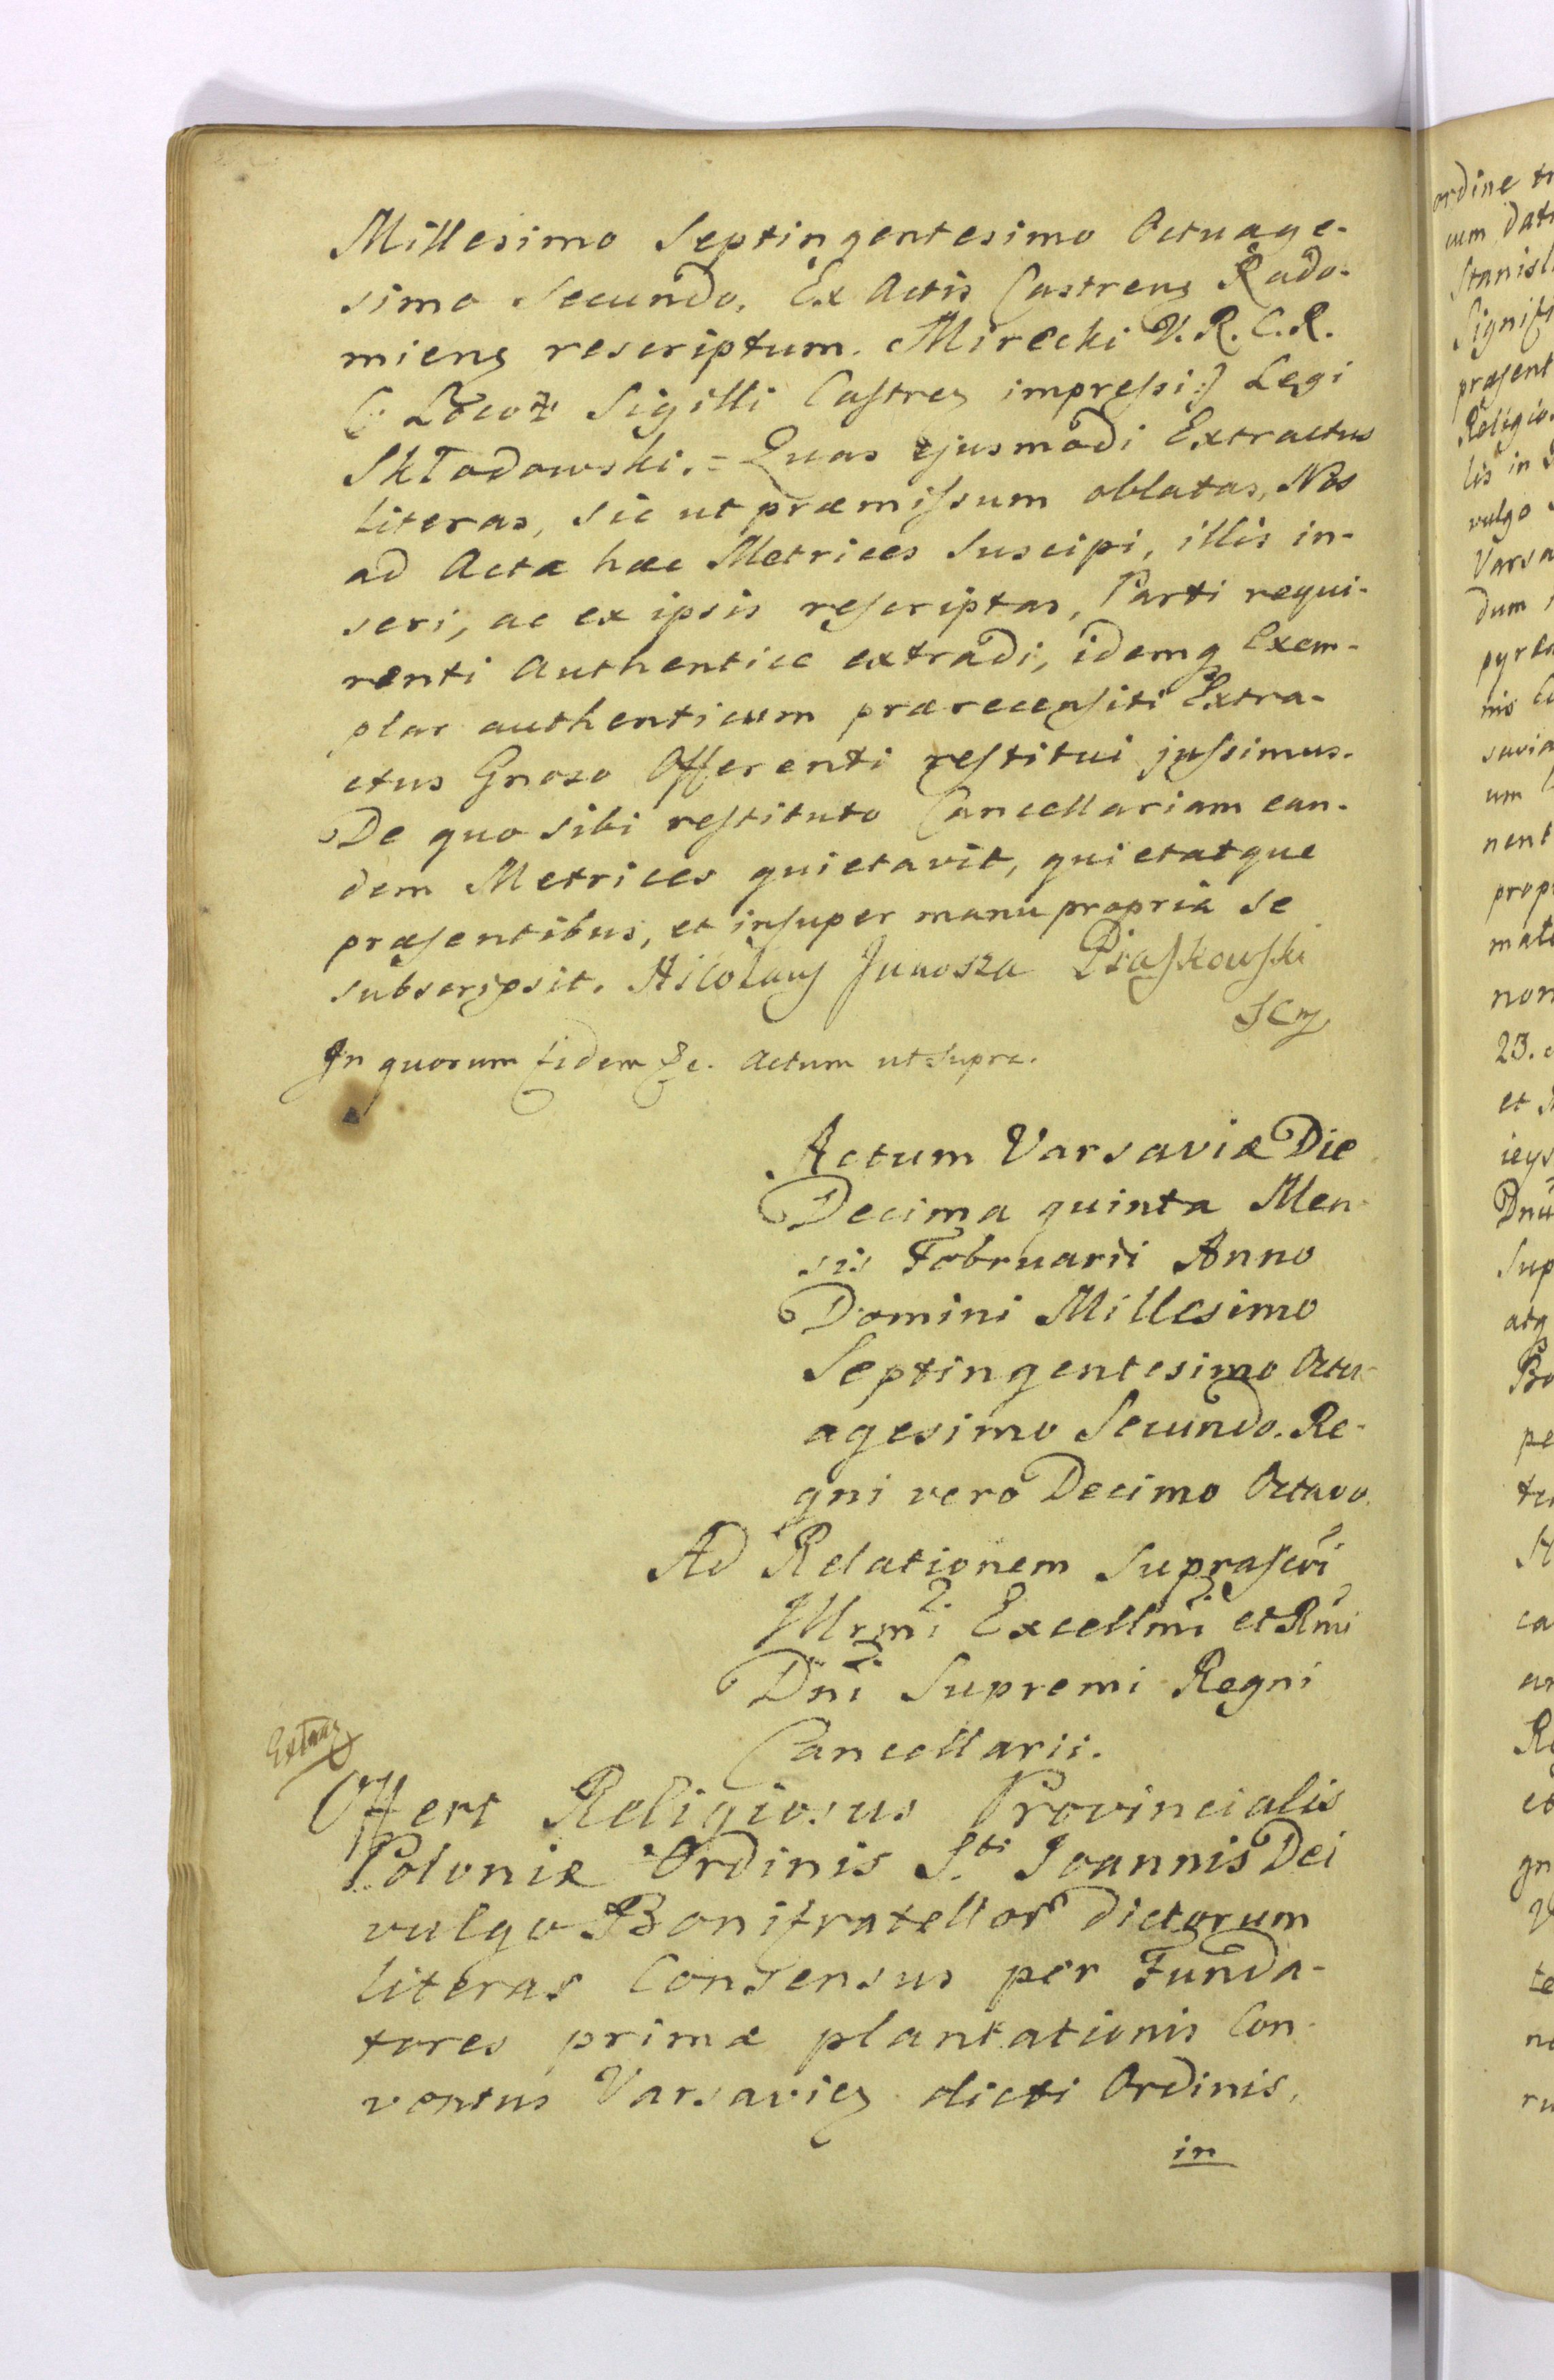 Millesimo Septingentesimo Octuage-
simo Secundo. Ex Actis Castrens Rado-
miens rescriptum. Mirecki V. R. C. R.
(: Locoꝫ Sigilli Castren impreſsi :) Legi
Skłodowski. = Quas ejusmodi Extractus
literas, sic ut præmiſsum oblatas, Nos
ad Acta hæc Metrices Suscipi, illis in-
seri, ac ex ipsis reſcriptas, Parti requi-
renti Authentice extradi, idemq Exem-
plar authenticum prærecenſiti Extra-
ctus Gnoso Offerenti reſtitui juſsimus.
De quo sibi reſtituto Cancellariam ean-
dem Metrices quietavit, quietatque
præſentibus, et inſuper manu propria se
subscripsit. Nicolaus Junosza Piaſkowſki
In quorum fidem &c. Actum ut supra.
Actum Varsaviæ Die
Decima quinta Men-
sis Februarii Anno
Domini Millesimo
Septingentesimo Octu-
agesimo Secundo. Re-
gni vero Decimo Octavo.
Ad Relationem Supraſcri
Illrmi Excellmi et Rmi
Dni Supremi Regni
Cancellarii.
Offert Religiosus Provincialis
Poloniæ Ordinis S.ti Joannis Dei
vulgo Bonifratellor dictorum
literas Consensus per Funda-
tores primæ plantationis Con-
ventus Varsavien dicti Ordinis,
in
ordine
cum
Stanisl
præsent
Religio
lis in
vulgo
Varsa
dum
nent
prop
non
23.
et
Sup
pe
ca
et